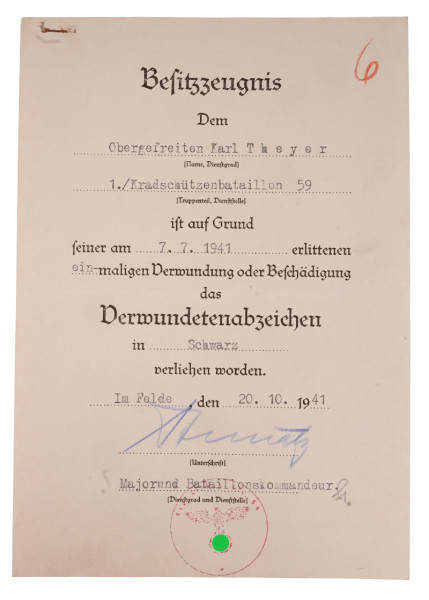 6
Besitzzeugnis
Dem
Obergefreiten Karl Theyer
(Name, Dienstgrad)
1./Kradschützenbataillon 59
(Truppenteil, Dienststelle)
ist auf Grund
seiner am 7.7.1941 erlittenen
ein-maligen Verwundung oder Beschädigung
das
Verwundetenabzeichen
in Schwarz
verliehen worden.
Im Felde, den 20.10.1941
(Unterschrift)
Majorund Bataillonskommandeur.
(Dienstgrad und Dienststelle)